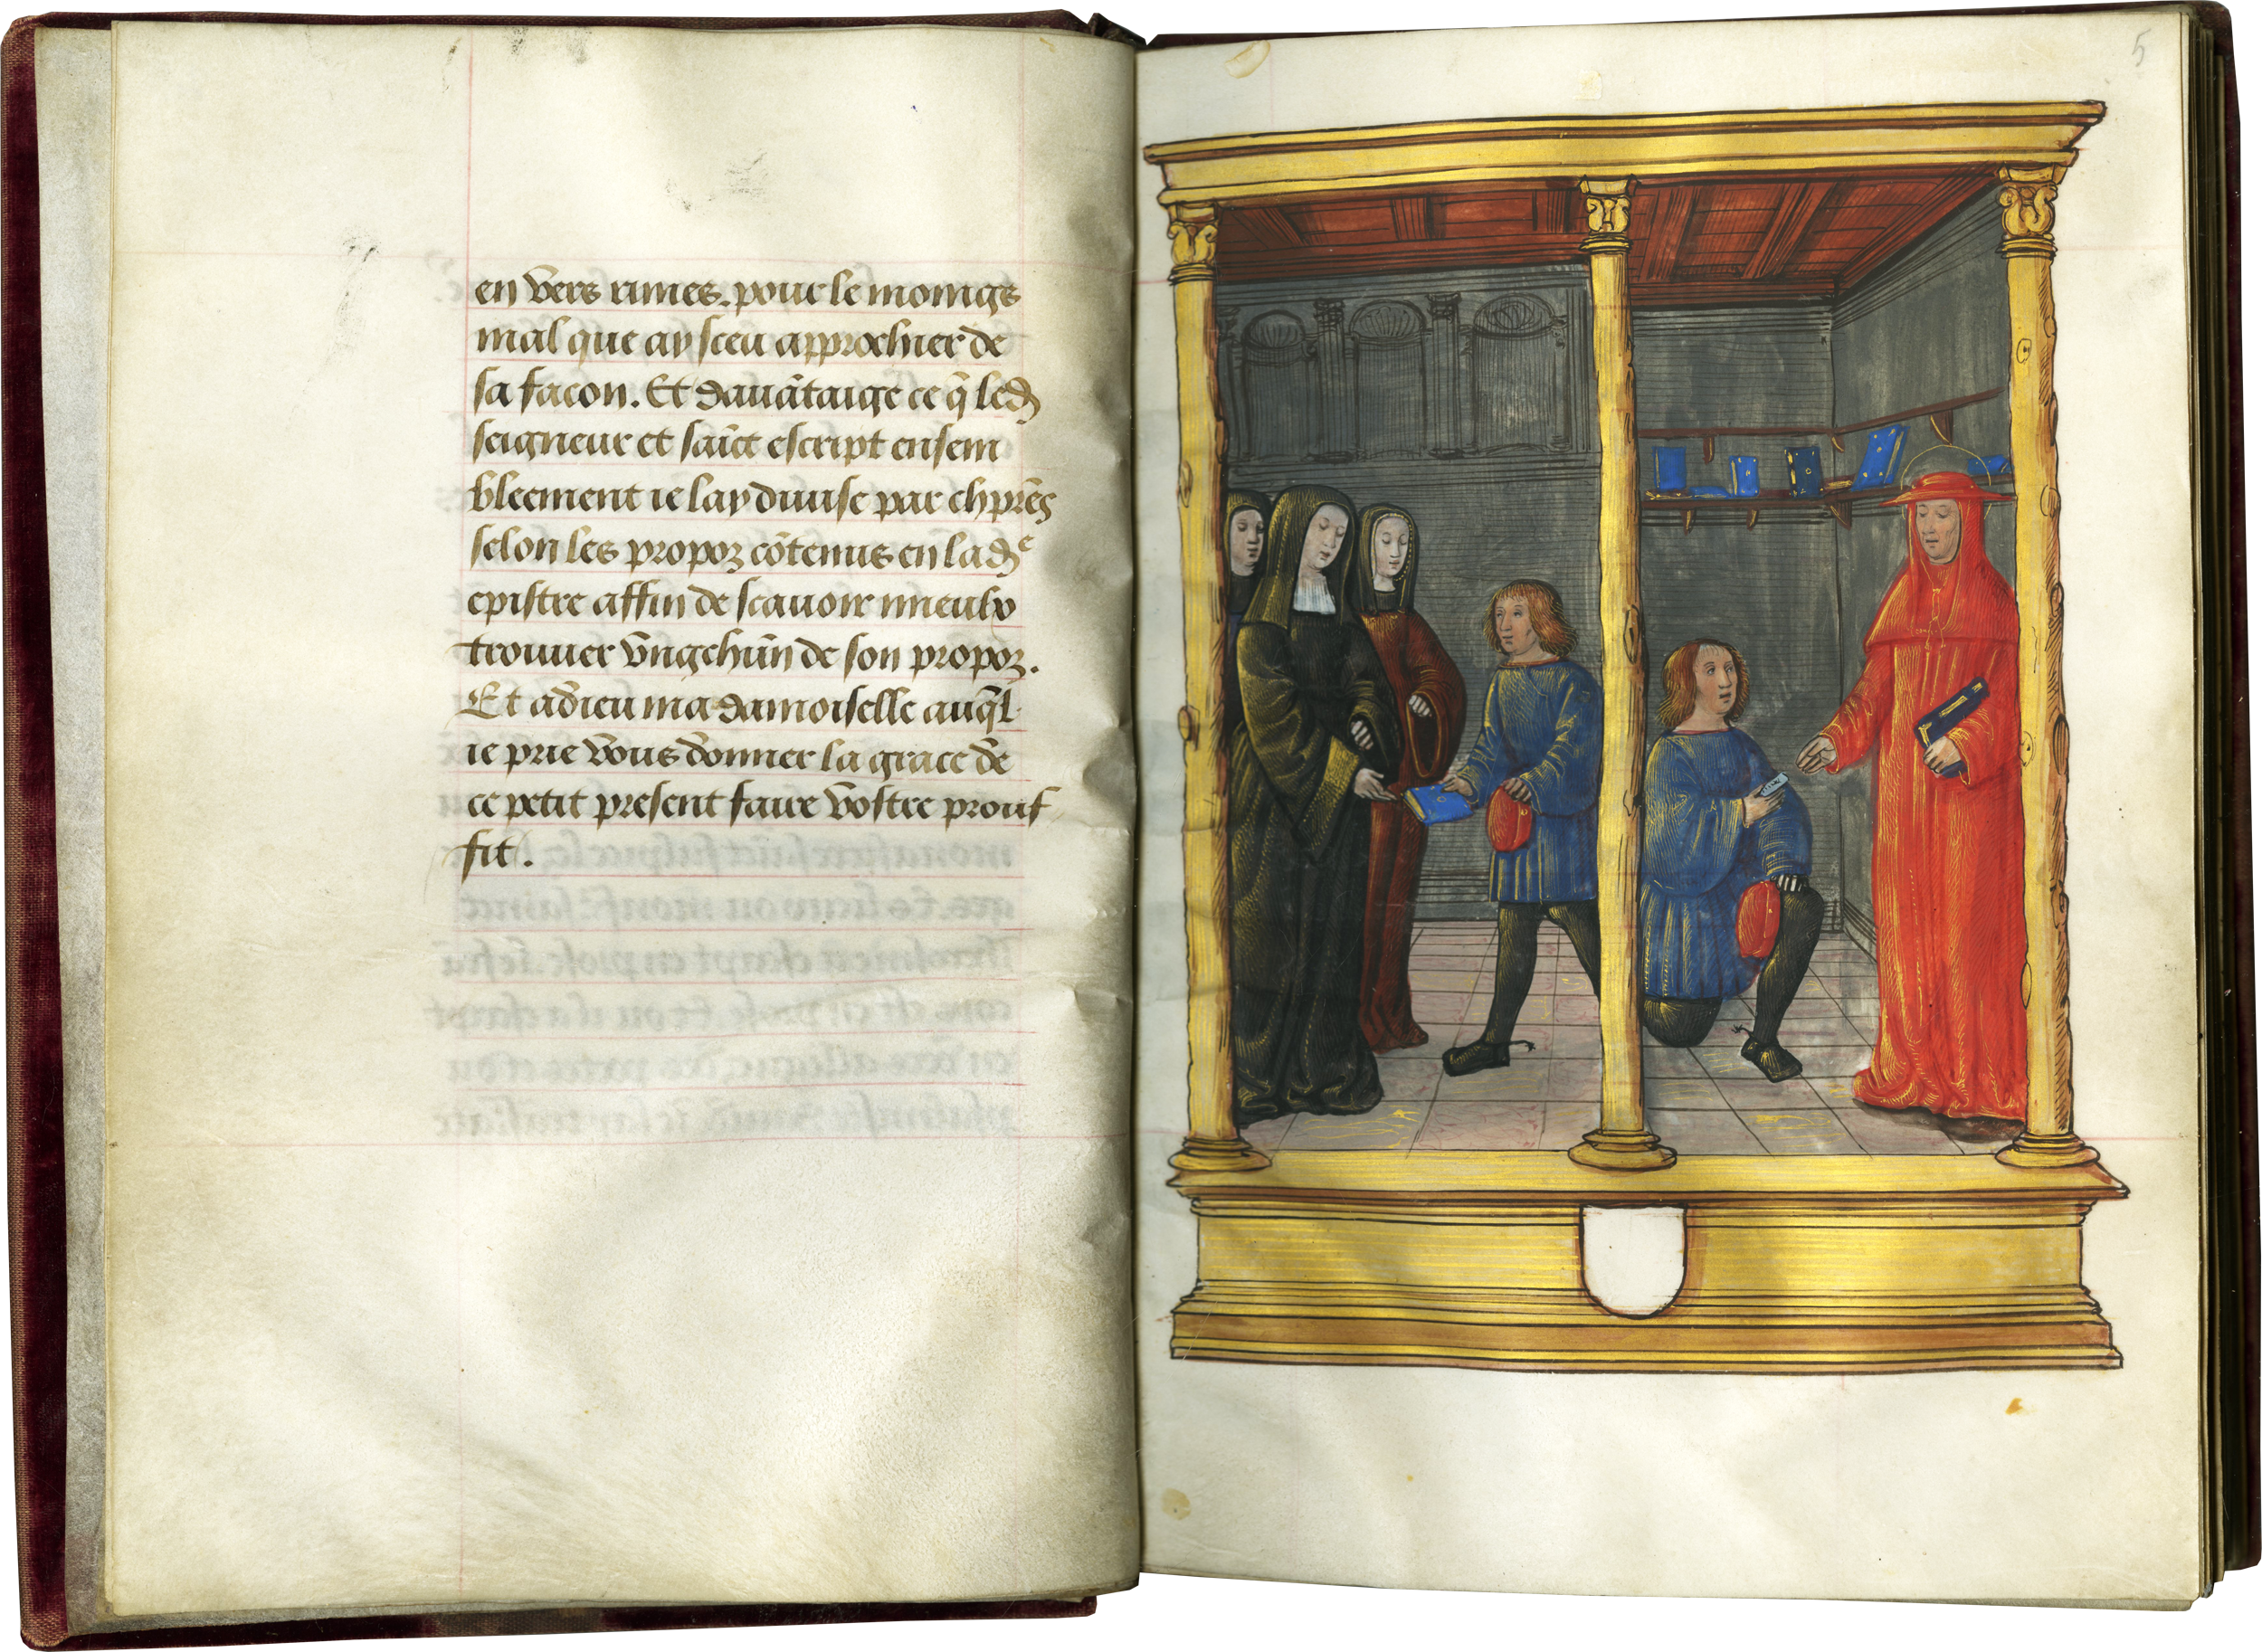 en vers rimes. pour le moings
mal que ay sceu approchier de
sa facon. Et davātaige ce q̄ led
seigneur et saīct escript ensem
bleement ie lay divise par chpr̄es
selon les propoz cōtenus en lad^e
epistre affin de scavoir mieulx
trouver vng chūn de son propoz.
Et adieu madamoiselle auq̄l
ie prie vous donner la grace de
ce petit present faire vostre prouf
fit.
5